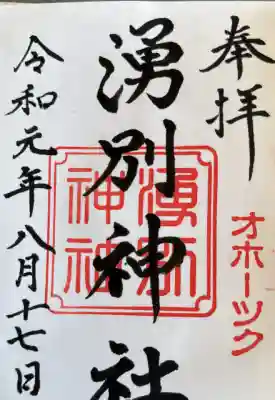 奉拝
オホーツク
湧別神社
令和元年八月十七日